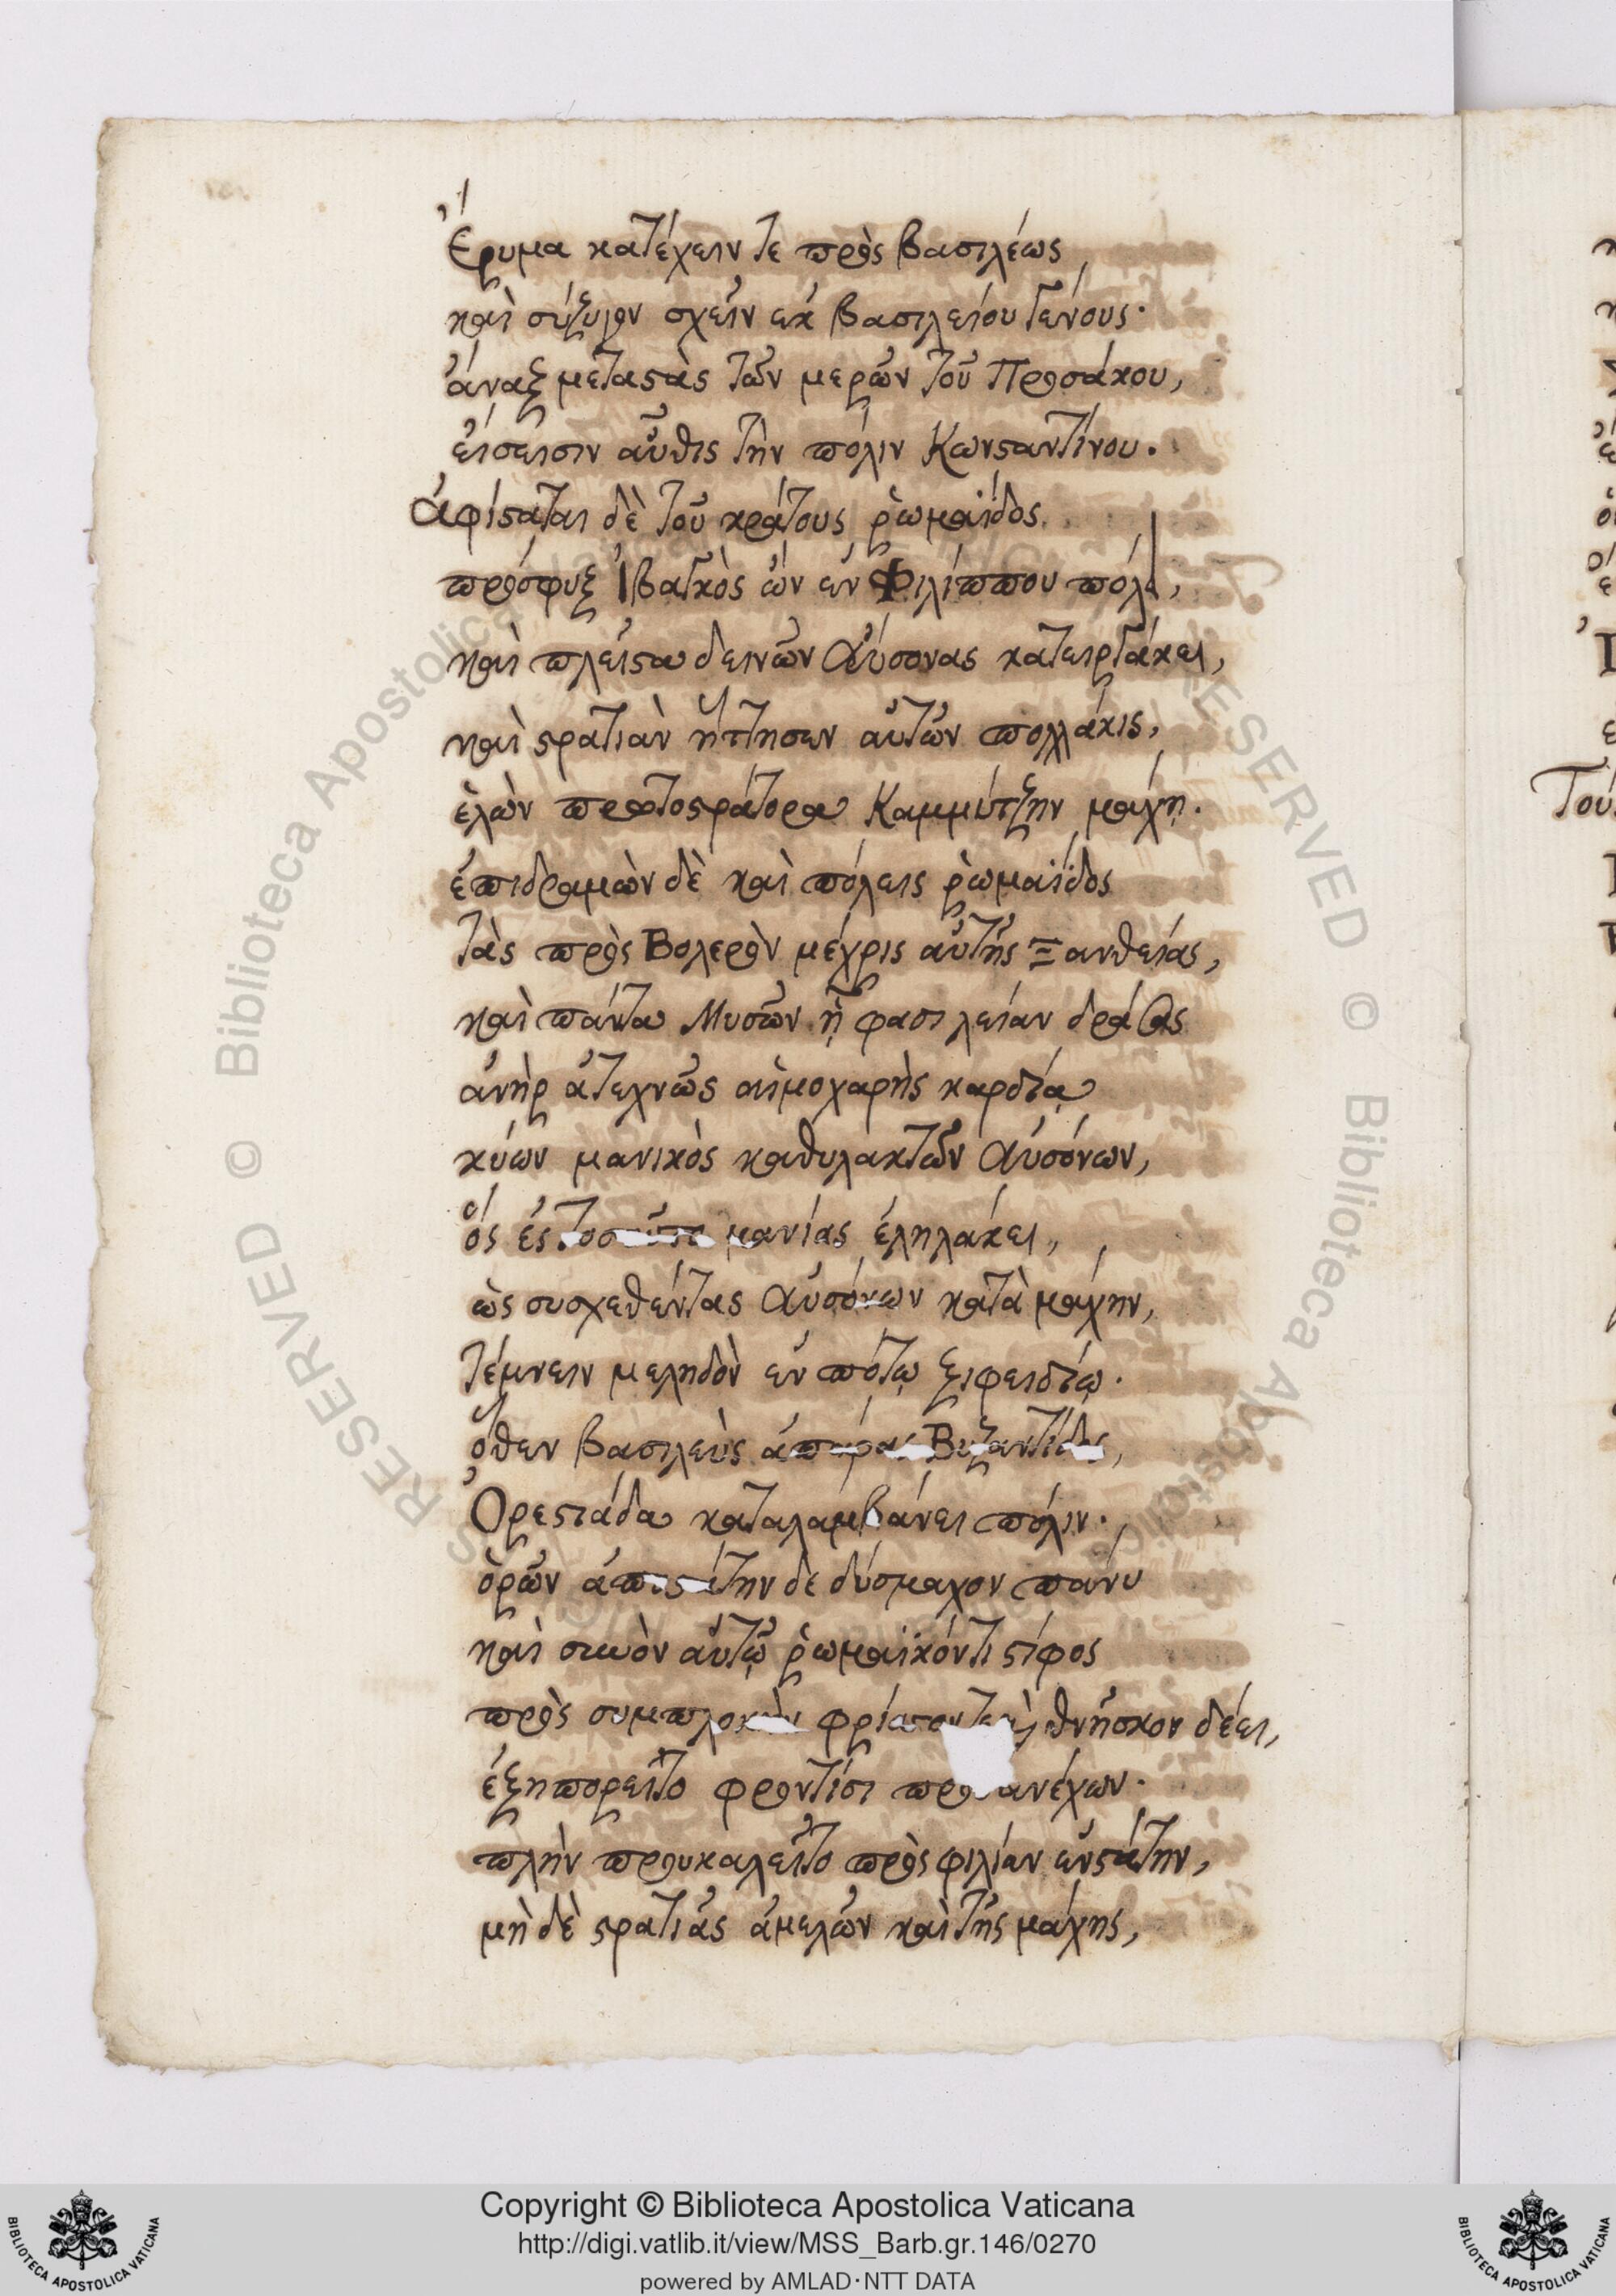 Ἔρυμα κατέχειν τε πρὸς βασιλέως,
καὶ σύζυγον σχεῖν ἐκ βασιλείου γένους·
ἄναξ μεταστὰς τῶν μερῶν τοῦ Προσάκου,
εἴσεισιν αὖθις τὴν πόλιν Κωνσταντίνου.
ἀφίσταται δὲ τοῦ κράτους ῥωμαΐδος
πρόσφυξ Ἰβαγκὸς ὢν ἐν Φιλίππου πόλει,
καὶ πλεῖστα δεινῶν Αὔσονας κατειργάκει,
καὶ στρατιὰν ἥττησεν αὐτῶν πολλάκις,
ἑλὼν πρωτοστράτορα Καμμύτζην μάχῃ.
ἐπιδραμὼν δὲ καὶ πόλεις ῥωμαΐδος
τὰς πρὸς Βολερὸν μέχρις αὐτῆς Ξανθείας,
καὶ πάντα Μυσῶν ἥ φασι λείαν δράσας
ἀνὴρ ἀτεχνῶς αἱμοχαρὴς καρδίᾳ
κύων μανικὸς καθυλακτῶν Αὐσόνων,
ὃς ἐς τοσοῦτο μανίας ἐληλάκει,
ὡς συσχεθέντας Αὐσόνων κατὰ μάχην,
τέμνειν μεληδὸν ἐν πότῳ ξιφειδίῳ.
ὅθεν βασιλεὺς ἀπάρας Βυζαντίδος,
Ὀρεστιάδα καταλαμβάνει πόλιν·
ὁρῶν ἀποστάτην δὲ δύσμαχον πάνυ
καὶ συνὸν αὐτῷ ῥωμαϊκόν τι στίφος
πρὸς συμπλοκὴν φρίττον τε καὶ θνῆσκον δέει,
ἐξηπορεῖτο φροντίσι προσανέχων·
πλὴν προυκαλεῖτο πρὸς φιλίαν ἐνστάτην,
μὴ δὲ στρατιᾶς ἀμελῶν καὶ τῆς μάχης,
Copyright © Biblioteca Apostolica Vaticana
http://digi.vatlib.it/view/MSS_Barb.gr.146/0270
powered by AMLAD·NTT DATA